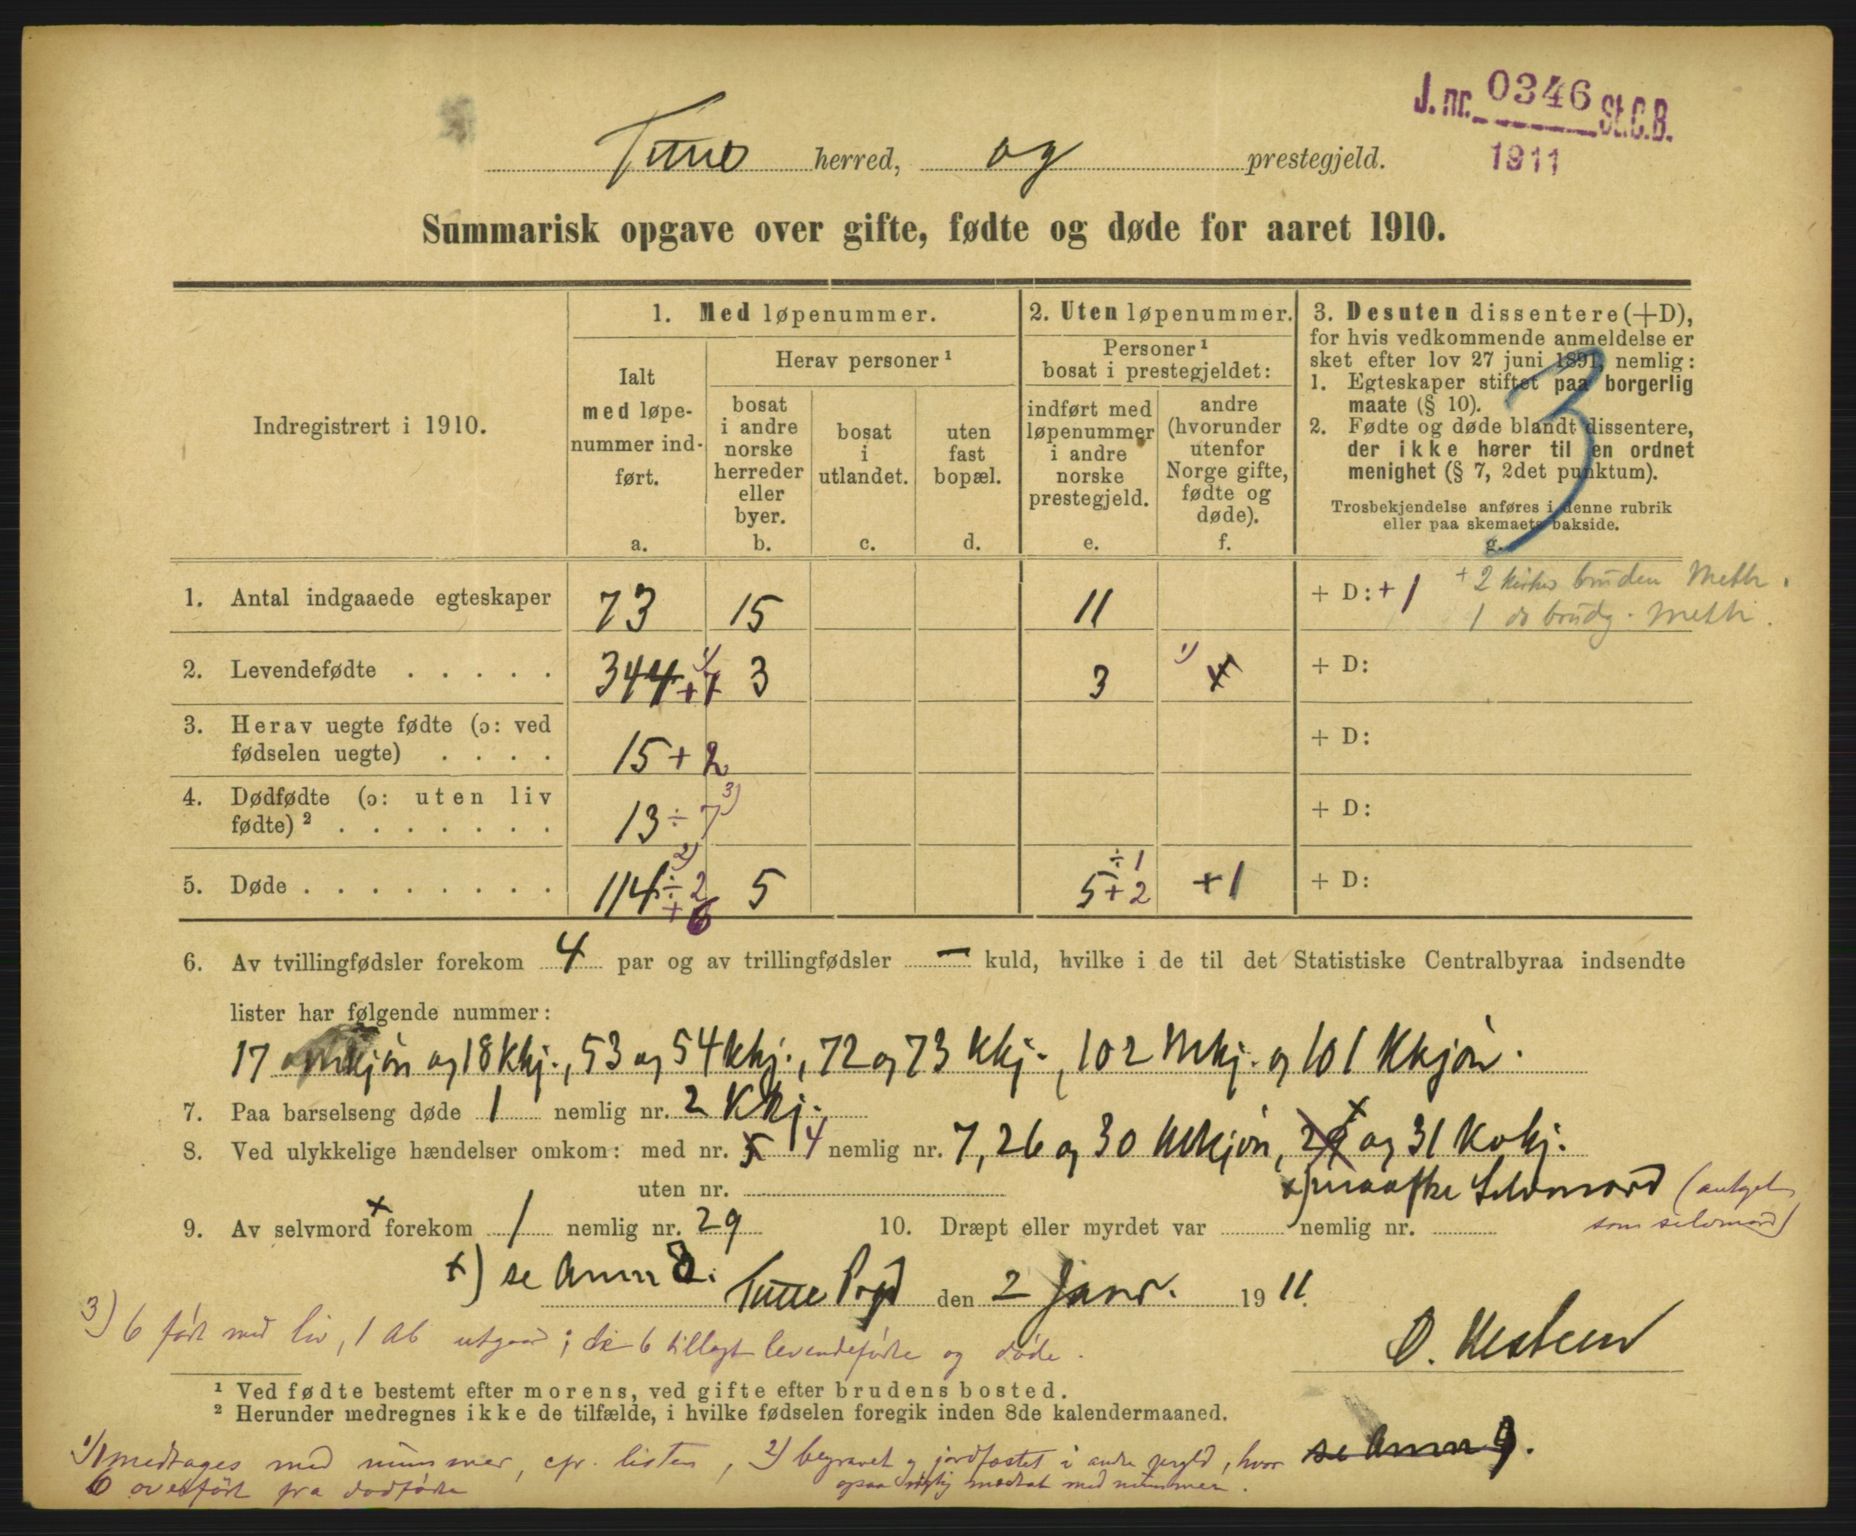 J. nr. 0346 St.C.B.
1911
Tune herred, og prestegjeld.
Summarisk opgave over gifte, fødte og døde for aaret 1910.
Indregistrert i 1910.
1. Med løpenummer.
Ialt med løpenummer indført.
a.
Herav personer ¹
bosat i andre norske herreder eller byer.
b.
bosat i utlandet.
c.
uten fast bopæl.
d.
2. Uten løpenummer.
Personer ¹ bosat i prestegjeldet:
indført med løpenummer i andre norske prestegjeld.
e.
andre (hvorunder utenfor Norge gifte, fødte og døde).
f.
3. Desuten dissentere (+D),
for hvis vedkommende anmeldelse er
sket efter lov 27 juni 1891, nemlig:
1. Egteskaper stiftet paa borgerlig
maate (§ 10).
2. Fødte og døde blandt dissentere,
der ikke hører til en ordnet
menighet (§ 7, 2det punktum).
Trosbekjendelse anføres i denne rubrik
eller paa skemaets bakside.
g.
3
1. Antal indgaaede egteskaper 73 15 11 + D: +1 +2 kirker bruden Meth.
1 do brudg. Meth.
2. Levendefødte . . . . . 344 +7 1) 3 3 1) +
+ D:
3. Herav uegte fødte (ɔ: ved
fødselen uegte) . . . . 15 + 2 + D:
4. Dødfødte (ɔ: uten liv
fødte) ² . . . . . . . 13 ÷ 7 3) + D:
5. Døde . . . . . . . . 114 ÷ 2 2) + 6 5 5 + 2 ÷ 1 +1 + D:
6. Av tvillingfødsler forekom 4 par og av trillingfødsler — kuld, hvilke i de til det Statistiske Centralbyraa indsendte
lister har følgende nummer:
17 mkjøn og 18 Kkj., 53 og 54 Kkj., 72 og 73 Kkj., 102 Mkj. og 101 Kkjøn.
7. Paa barselseng døde 1 nemlig nr. 2 Kkj.
8. Ved ulykkelige hændelser omkom: med nr. 5 4 nemlig nr. 7, 26 og 30 Mkjøn, 29 x og 31 Kvkj.
uten nr. x) maaske Selvmord (antget
som selvmord)
9. Av selvmord x forekom 1 nemlig nr. 29 10. Dræpt eller myrdet var nemlig nr.
x) se Anm 8. Tune Prgd den 2 Janr. 1911.
O. Nesteen
3) 6 født med liv, 1 Ab utgaar; de 6 tillagt levendefødte og døde.
¹ Ved fødte bestemt efter morens, ved gifte efter brudens bosted.
² Herunder medregnes ikke de tilfælde, i hvilke fødselen foregik inden 8de kalendermaaned.
se Anm 9.
1) 1 medtages med nummer, cfr. listen, 2) begravet og jordfæstet i andre prgld, hvor
6 overført fra dødfødte ogsaa rigtig medtat med nummer.